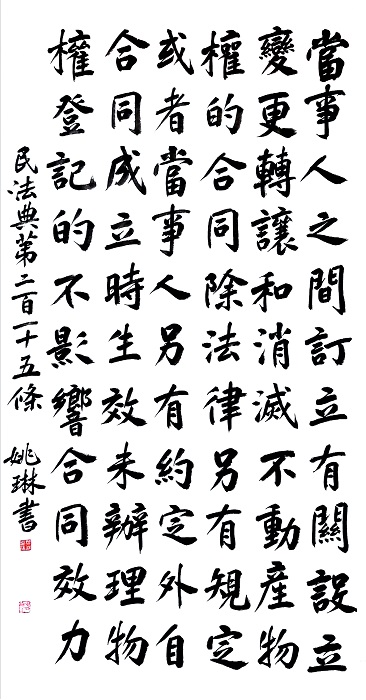 當事人之間訂立有關設立
變更轉讓和消滅不動產物
權的合同除法律另有規定
或者當事人另有約定外自
合同成立時生效未辦理物
權登記的不影響合同效力
民法典第二百一十五條 姚琳書